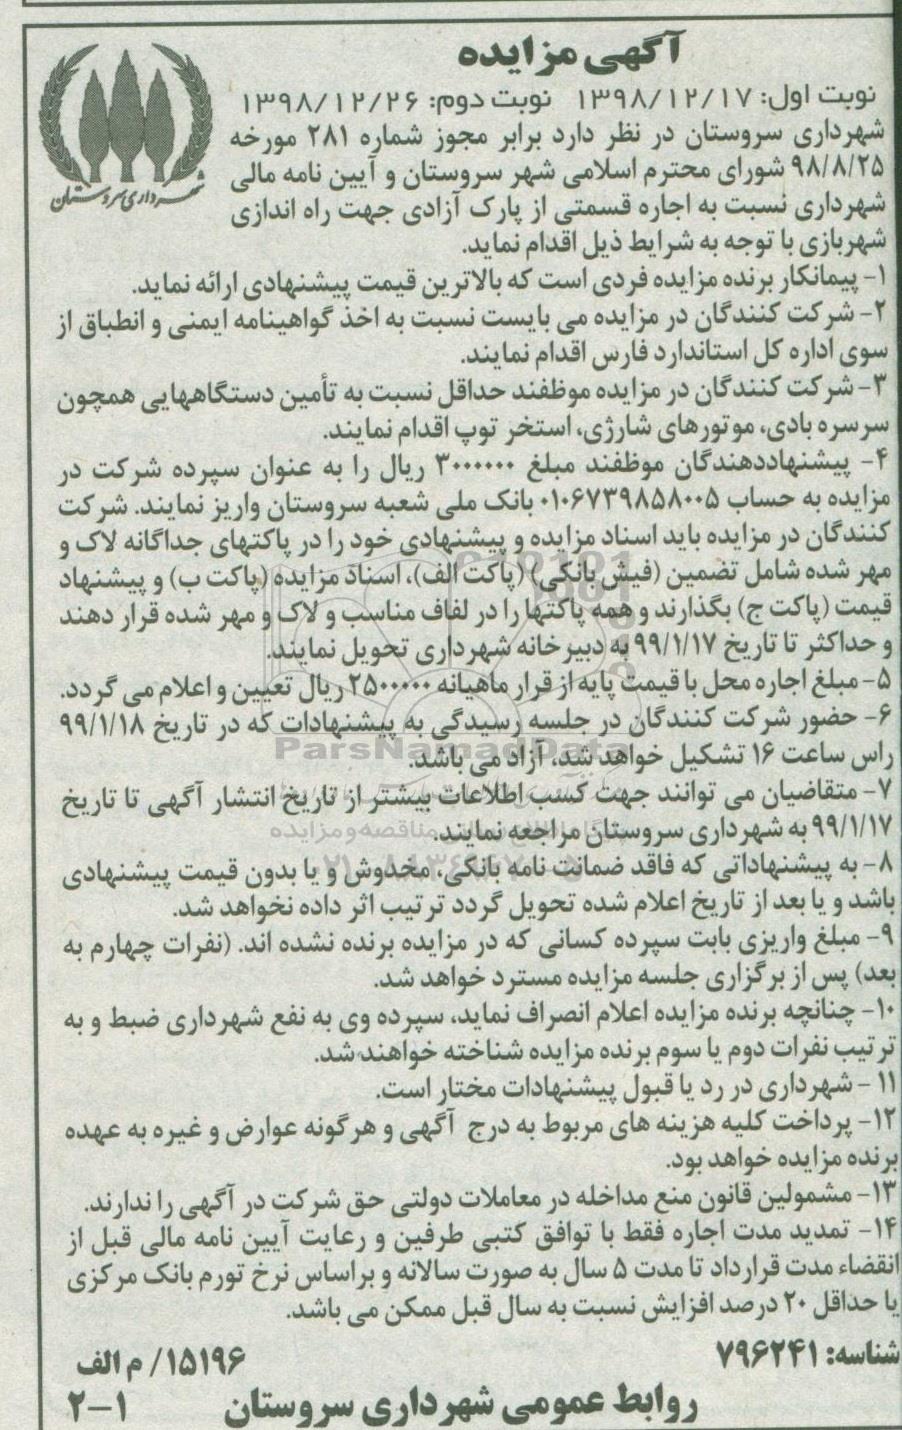 آگهی مزایده
نوبت اول: ۱۳۹۸/۱۲/۱۷ نوبت دوم: ۱۳۹۸/۱۲/۲۶
شهرداری سروستان
شهرداری سروستان در نظر دارد برابر مجوز شماره ۲۸۱ مورخه
۹۸/۸/۲۵ شورای محترم اسلامی شهر سروستان و آیین نامه مالی
شهرداری نسبت به اجاره قسمتی از پارک آزادی جهت راه اندازی
شهربازی با توجه به شرایط ذیل اقدام نماید.
۱- پیمانکار برنده مزایده فردی است که بالاترین قیمت پیشنهادی ارائه نماید.
۲- شرکت کنندگان در مزایده می بایست نسبت به اخذ گواهینامه ایمنی و انطباق از
سوی اداره کل استاندارد فارس اقدام نمایند.
۳- شرکت کنندگان در مزایده موظفند حداقل نسبت به تأمین دستگاههایی همچون
سرسره بادی، موتورهای شارژی، استخر توپ اقدام نمایند.
۴- پیشنهاددهندگان موظفند مبلغ ۳۰۰۰۰۰۰ ریال را به عنوان سپرده شرکت در
مزایده به حساب ۰۱۰۶۷۳۹۸۵۸۰۰۵ بانک ملی شعبه سروستان واریز نمایند. شرکت
کنندگان در مزایده باید اسناد مزایده و پیشنهادی خود را در پاکتهای جداگانه لاک و
مهر شده شامل تضمین (فیش بانکی) (پاکت الف)، اسناد مزایده (پاکت ب) و پیشنهاد
قیمت (پاکت ج) بگذارند و همه پاکتها را در لفاف مناسب و لاک و مهر شده قرار دهند
و حداکثر تا تاریخ ۹۹/۱/۱۷ به دبیرخانه شهرداری تحویل نمایند.
۵- مبلغ اجاره محل با قیمت پایه از قرار ماهیانه ۲۵۰۰۰۰۰ ریال تعیین و اعلام می گردد.
۶- حضور شرکت کنندگان در جلسه رسیدگی به پیشنهادات که در تاریخ ۹۹/۱/۱۸
ParsNamadData
راس ساعت ۱۶ تشکیل خواهد شد، آزاد می باشد.
۷- متقاضیان می توانند جهت کسب اطلاعات بیشتر از تاریخ انتشار آگهی تا تاریخ
۹۹/۱/۱۷ به شهرداری سروستان مراجعه نمایند.
۸- به پیشنهاداتی که فاقد ضمانت نامه بانکی، مخدوش و یا بدون قیمت پیشنهادی
باشد و یا بعد از تاریخ اعلام شده تحویل گردد ترتیب اثر داده نخواهد شد.
۹- مبلغ واریزی بابت سپرده کسانی که در مزایده برنده نشده اند. (نفرات چهارم به
بعد) پس از برگزاری جلسه مزایده مسترد خواهد شد.
۱۰- چنانچه برنده مزایده اعلام انصراف نماید، سپرده وی به نفع شهرداری ضبط و به
ترتیب نفرات دوم یا سوم برنده مزایده شناخته خواهند شد.
۱۱ - شهرداری در رد یا قبول پیشنهادات مختار است.
۱۲- پرداخت کلیه هزینه های مربوط به درج آگهی و هرگونه عوارض و غیره به عهده
برنده مزایده خواهد بود.
۱۳- مشمولین قانون منع مداخله در معاملات دولتی حق شرکت در آگهی را ندارند.
۱۴- تمدید مدت اجاره فقط با توافق کتبی طرفین و رعایت آیین نامه مالی قبل از
انقضاء مدت قرارداد تا مدت ۵ سال به صورت سالانه و براساس نرخ تورم بانک مرکزی
یا حداقل ۲۰ درصد افزایش نسبت به سال قبل ممکن می باشد.
شناسه: ۷۹۶۲۴۱ ۱۵۱۹۶/ م الف
روابط عمومی شهرداری سروستان ۲-۱